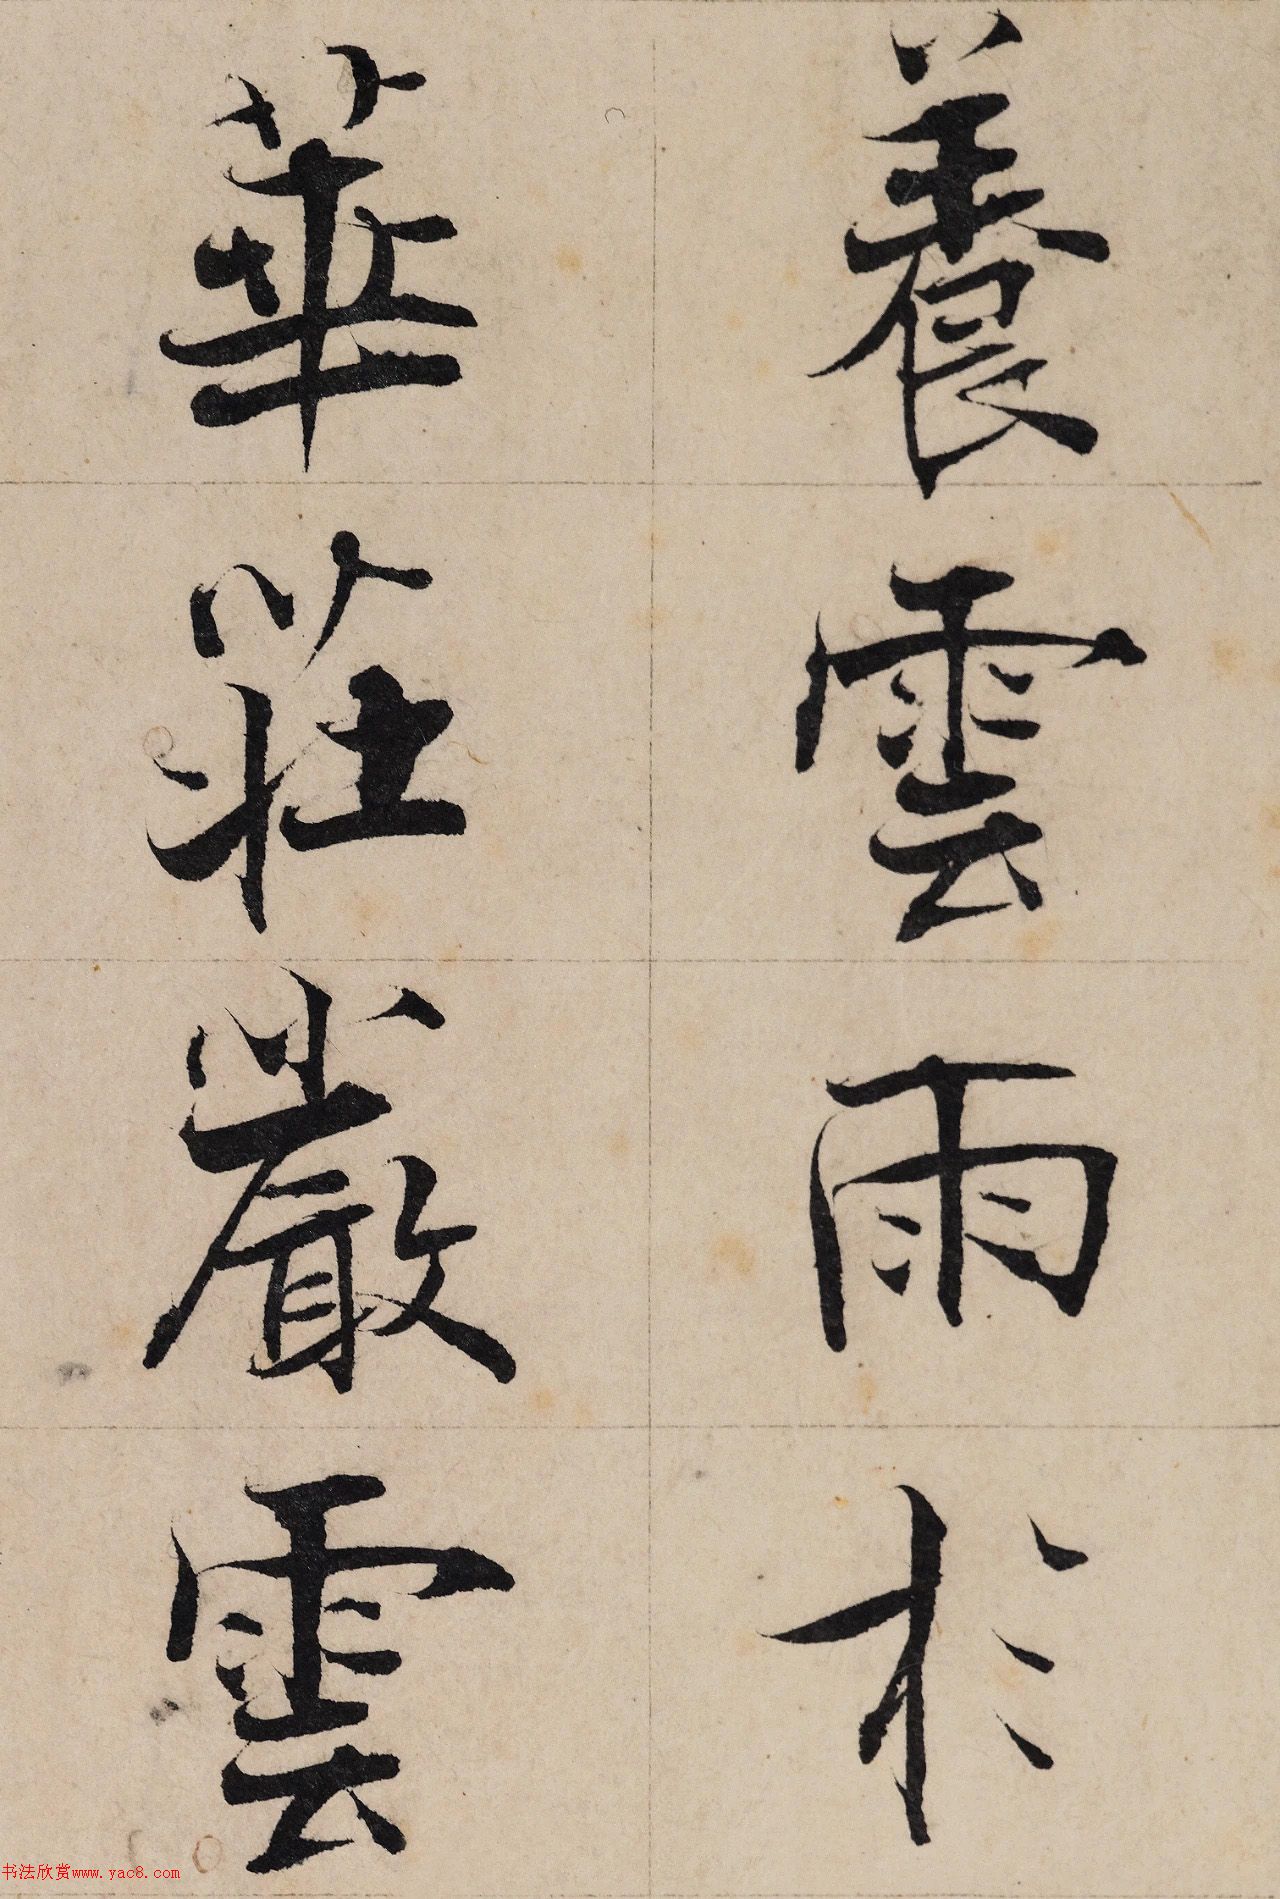 養雲雨於
華莊嚴雲
书法欣赏www.yac8.com